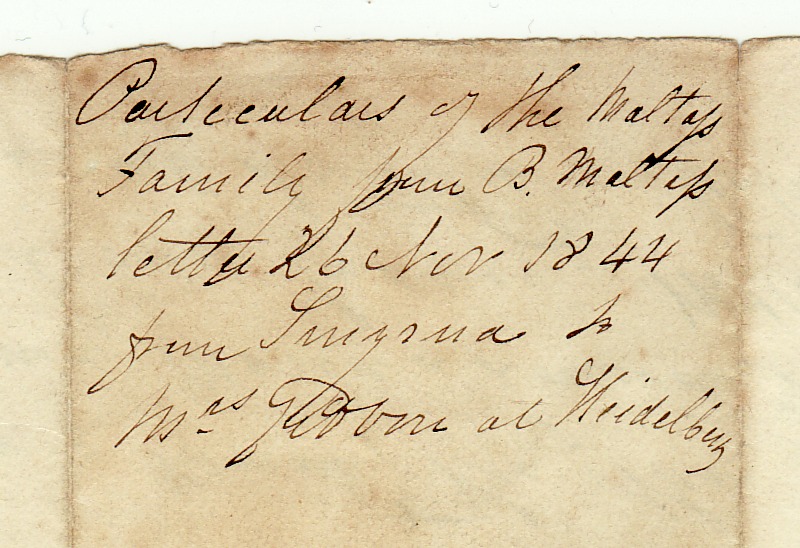 Particulars of the Maltass
Family from B. Maltass
letter 26 Nov 1844
from Smyrna to
Mrs Gibbon at Heidelberg